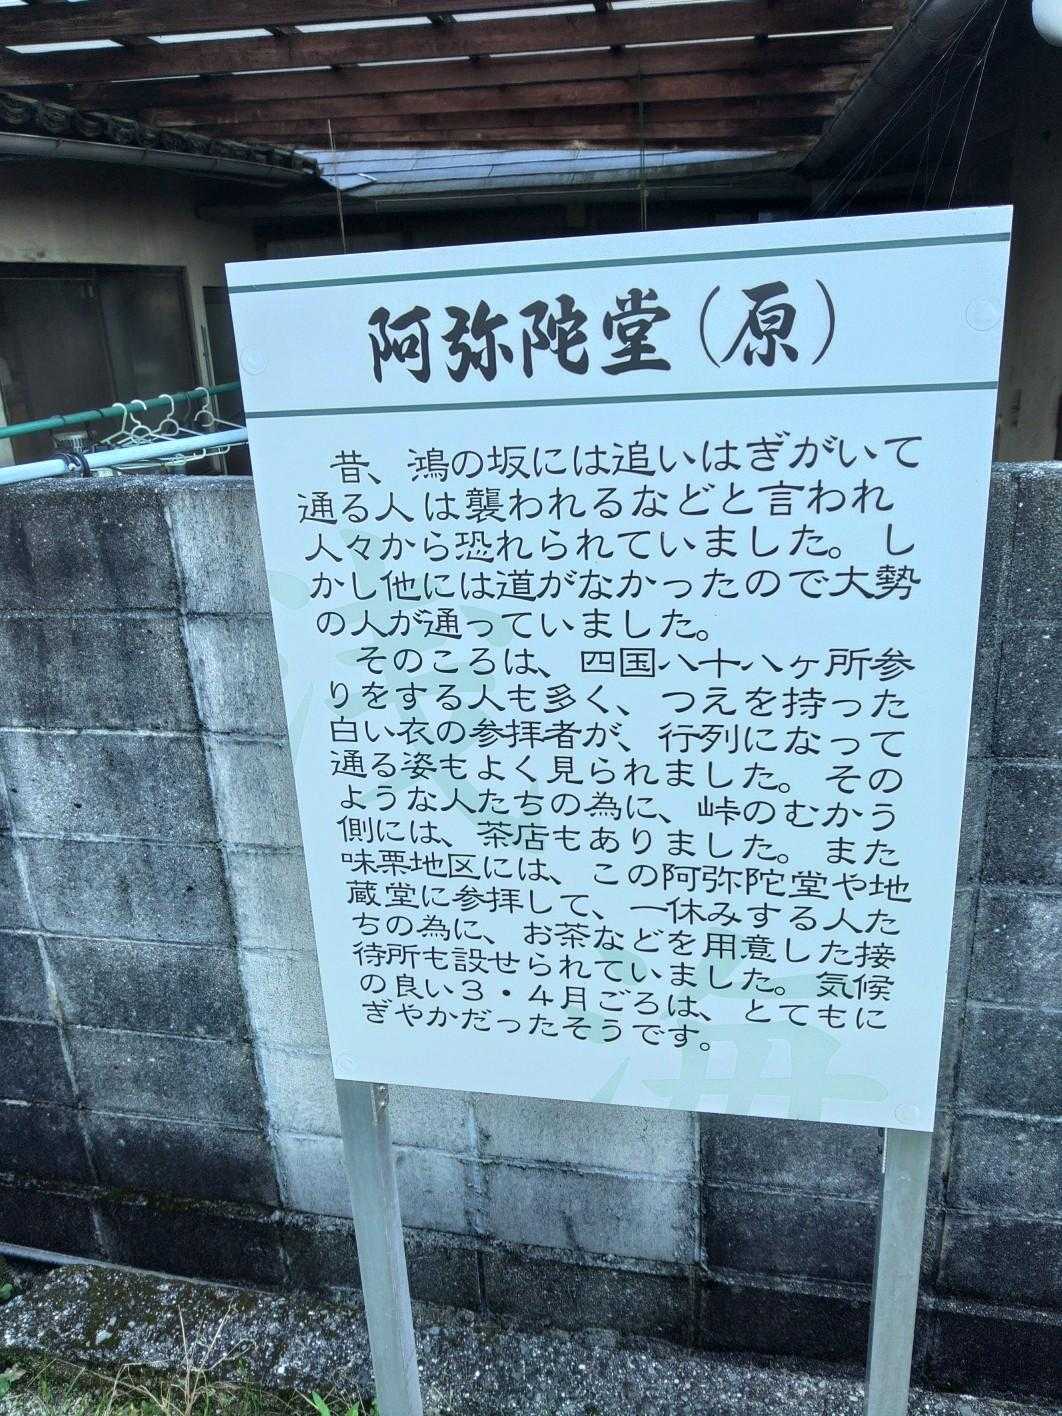 阿弥陀堂(原)
昔、鴻の坂には追いはぎがいて
通る人は襲われるなどと言われ
人々から恐れられていました。し
かし他には道がなかったので大勢
の人が通っていました。
そのころは、四国八十八ヶ所参
りをする人も多く、つえを持った
白い衣の参拝者が、行列になって
通る姿もよく見られました。その
ような人たちの為に、峠のむかう
側には、茶店もありました。また
味栗地区には、この阿弥陀堂や地
蔵堂に参拝して、一休みする人た
ちの為に、お茶などを用意した接
待所も設せられていました。気候
の良い3・4月ごろは、とてもに
ぎやかだったそうです。